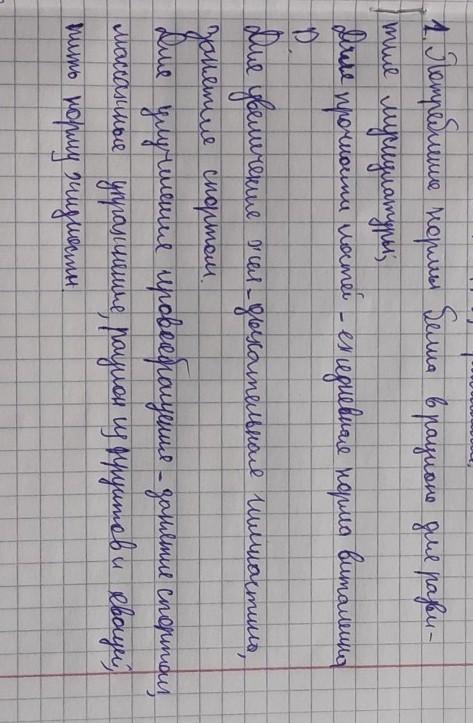 1. Потребление нормы белка в рационе для разви-
тие мускулатуры;
Для прочности костей - ежедневная норма витамина
D
Для увеличение жел - дыхательная гимнастика,
занятие спортом.
Для улучшения кровообращения - занятие спортом,
массажные упражнение, рацион из фруктов и овощей,
пить норму жидкости.